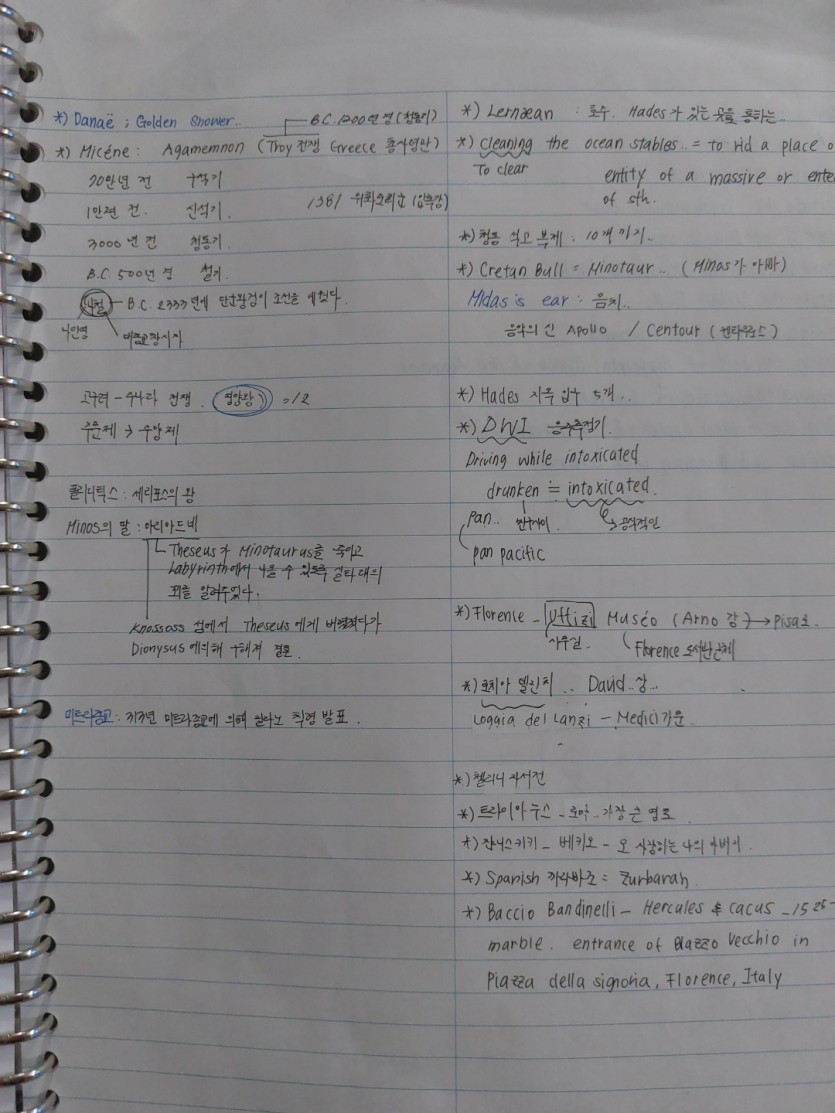 *) Danaë ; Golden Shower..
B.C. 1200년경 (청동기)
*) Micéne : Agamemnon (Troy 전쟁 Greece 총사령관)
70만년 전 구석기
1만년 전. 신석기.
1381 위화도회군
3000년 전 청동기.
B.C 500년 경 철기.
B.C. 2333년에 단군왕검이 조선을 세웠다.
고구려 - 수나라 전쟁. 영양왕 612
수문제 → 수양제
폴리덱스 : 세리포스의 왕
Minos의 딸 : 아리아드네
Theseus가 Minotaurus를 죽이고
Labyrinth에서 나올 수 있도록 실타래의
꾀를 알려주었다.
Knossoss 섬에서 Theseus에게 버려졌다가
Dionysus에 의해 구해져 결혼.
미트라종교 : 313년 미트라종교에 의해 밀라노 칙령 발표.
*) Lernæan : 호수. Hades가 있는 곳을 통하는..
*) cleaning the ocean stables.. = to rid a place o
To clear entity of a massive or
of sth.
*) 청동 10개
*) Cretan Bull = Minotaur .. (Minos가 아빠)
Midas is ear : 음치..
음악의 신 Apollo / Centour (켄타우로스)
*) Hades 지옥 입구 5개..
*) DWI 음주측정기.
Driving while intoxicated
drunken ≒ intoxicated.
pan.. 공식적인
pan pacific
*) Florence - Uffizi Muséo (Arno 강) → Pisa로.
사무실. Florence
*) 로지아 델란치 .. David 상..
Loggia del Lanzi - Medici 가문.
*) 첼리니 자서전
*) 트라이아누스 - 로마 - 가장 큰 영토
*) 쟌니스키키 - 오 사랑하는 나의 아버지.
*) Spanish 까라바조 = Zurbaran.
*) Baccio Bandinelli - Hercules & Cacus - 1525-
marble. entrance of Plazzo Vecchio in
Piazza della signoria, Florence, Italy